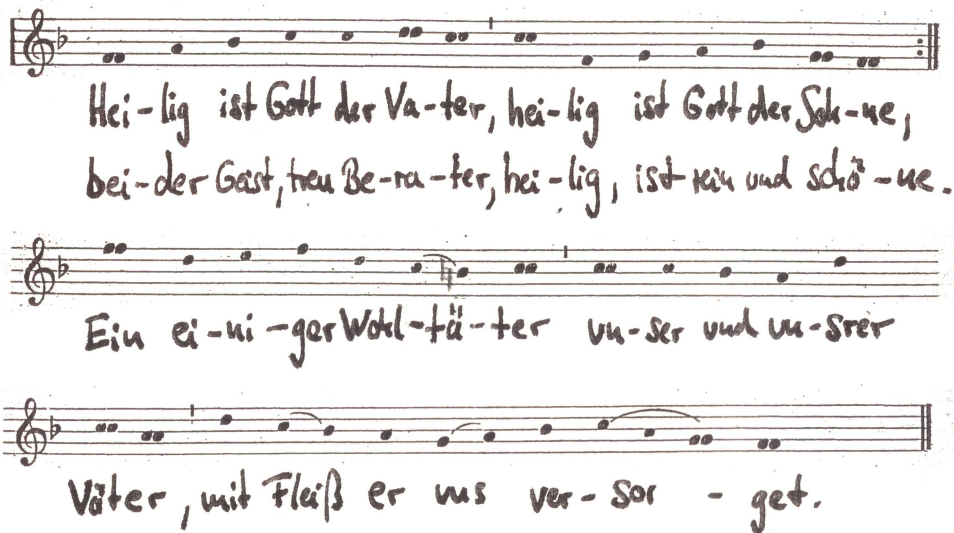 Hei-lig ist Gott der Va-ter, hei-lig ist Gott der Soh-ne,
bei-der Geist, treu Be-ra-ter, hei-lig, ist rein und schö-ne.
Ein ei-ni-ger Wohl-tä-ter un-ser und un-srer
Väter, mit Fleiß er uns ver-sor-get.